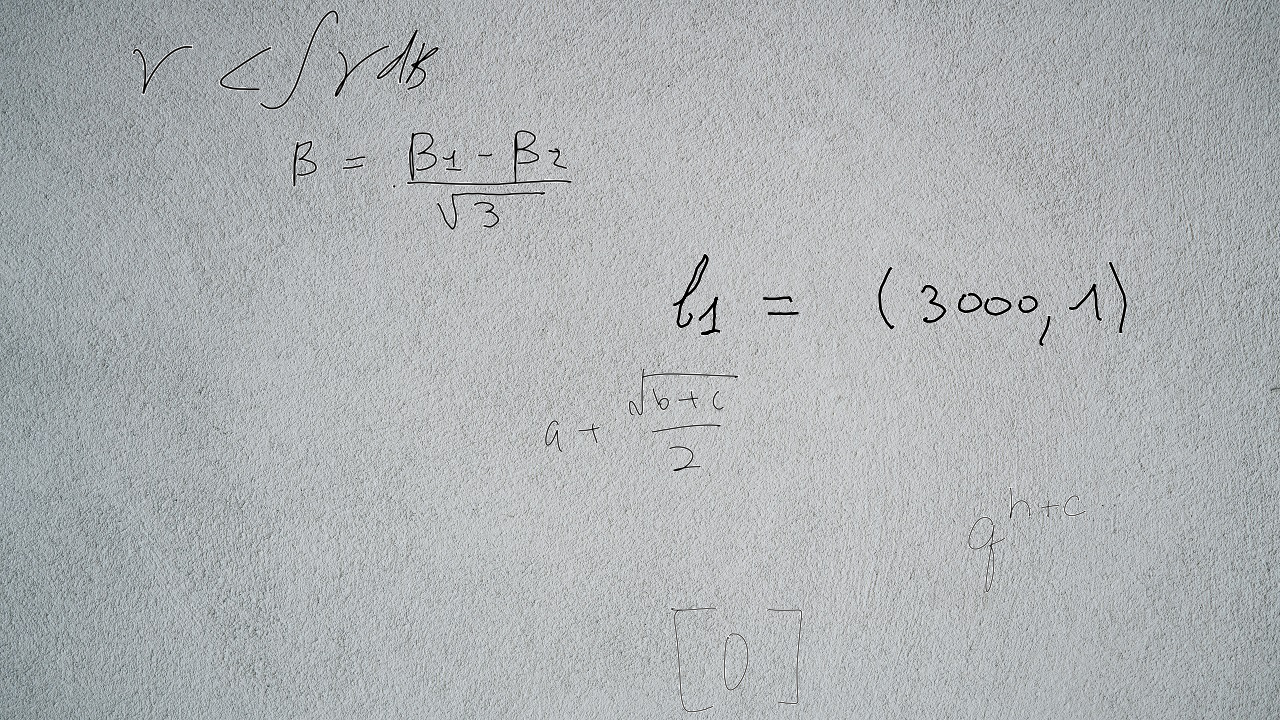 r < ∫ r dB
β = \frac{β_1 - β_2}{\sqrt{3}}
l_1 = (3000, 1)
a + \frac{\sqrt{b+c}}{2}
q^{h+c}
[0]